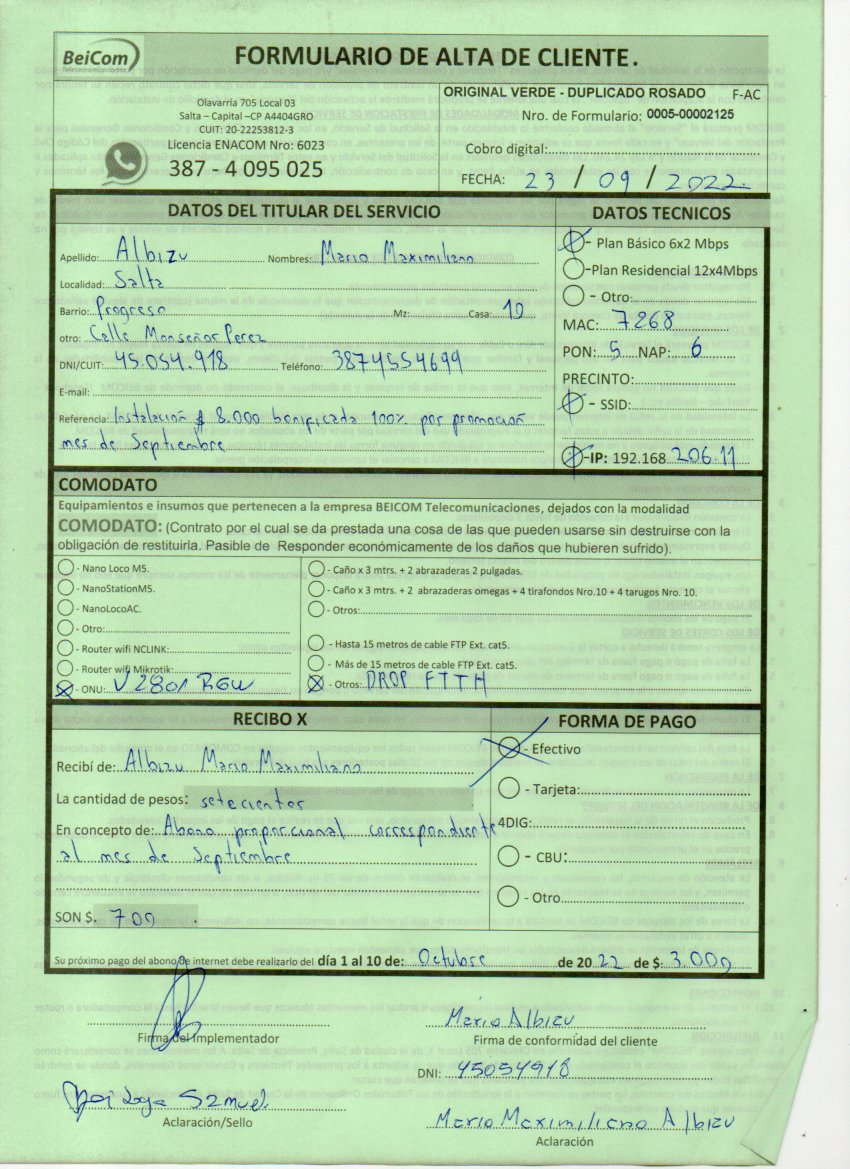 BeiCom
Telecomunicaciones
FORMULARIO DE ALTA DE CLIENTE.
Olavarría 705 Local 03
Salta – Capital –CP A4404GRO
CUIT: 20-22253812-3
Licencia ENACOM Nro: 6023
387 - 4 095 025
ORIGINAL VERDE - DUPLICADO ROSADO F-AC
Nro. de Formulario: 0005-00002125
Cobro digital:
FECHA: 23 / 09 / 2022
DATOS DEL TITULAR DEL SERVICIO
Apellido: Albizu Nombres: Mario Maximiliano
Localidad: Salta
Barrio: Progreso Mz: Casa: 10
otro: Calle Monseñor Perez
DNI/CUIT: 45.054.918 Teléfono: 3874554699
E-mail:
Referencia: Instalación $ 8.000 bonificada 100% por promoción
mes de Septiembre
DATOS TECNICOS
- Plan Básico 6x2 Mbps
-Plan Residencial 12x4Mbps
- Otro:
MAC: 7268
PON: 5 NAP: 6
PRECINTO:
- SSID:
-IP: 192.168. 206.11
COMODATO
Equipamientos e insumos que pertenecen a la empresa BEICOM Telecomunicaciones, dejados con la modalidad
COMODATO: (Contrato por el cual se da prestada una cosa de las que pueden usarse sin destruirse con la
obligación de restituirla. Pasible de Responder económicamente de los daños que hubieren sufrido).
- Nano Loco M5.
- NanoStationM5.
- NanoLocoAC.
- Otro:
- Router wifi NCLINK:
- Router wifi Mikrotik:
- ONU: V2801 RGW
- Caño x 3 mtrs. + 2 abrazaderas 2 pulgadas.
- Caño x 3 mtrs. + 2 abrazaderas omegas + 4 tirafondos Nro.10 + 4 tarugos Nro. 10.
- Otros:
- Hasta 15 metros de cable FTP Ext. cat5.
- Más de 15 metros de cable FTP Ext. cat5.
- Otros: DROP FTTH
RECIBO X
Recibí de: Albizu Mario Maximiliano
La cantidad de pesos: setecientos
En concepto de: Abono proporcional correspondiente
al mes de Septiembre
SON $. 700
FORMA DE PAGO
- Efectivo
- Tarjeta:
4DIG:
- CBU:
- Otro
Su próximo pago del abono de internet debe realizarlo del día 1 al 10 de: Octubre de 20 22 de $: 3.000
Firma del Implementador
Aclaración/Sello
Mario Albizu
Firma de conformidad del cliente
DNI: 45054918
Mario Maximiliano Albizu
Aclaración